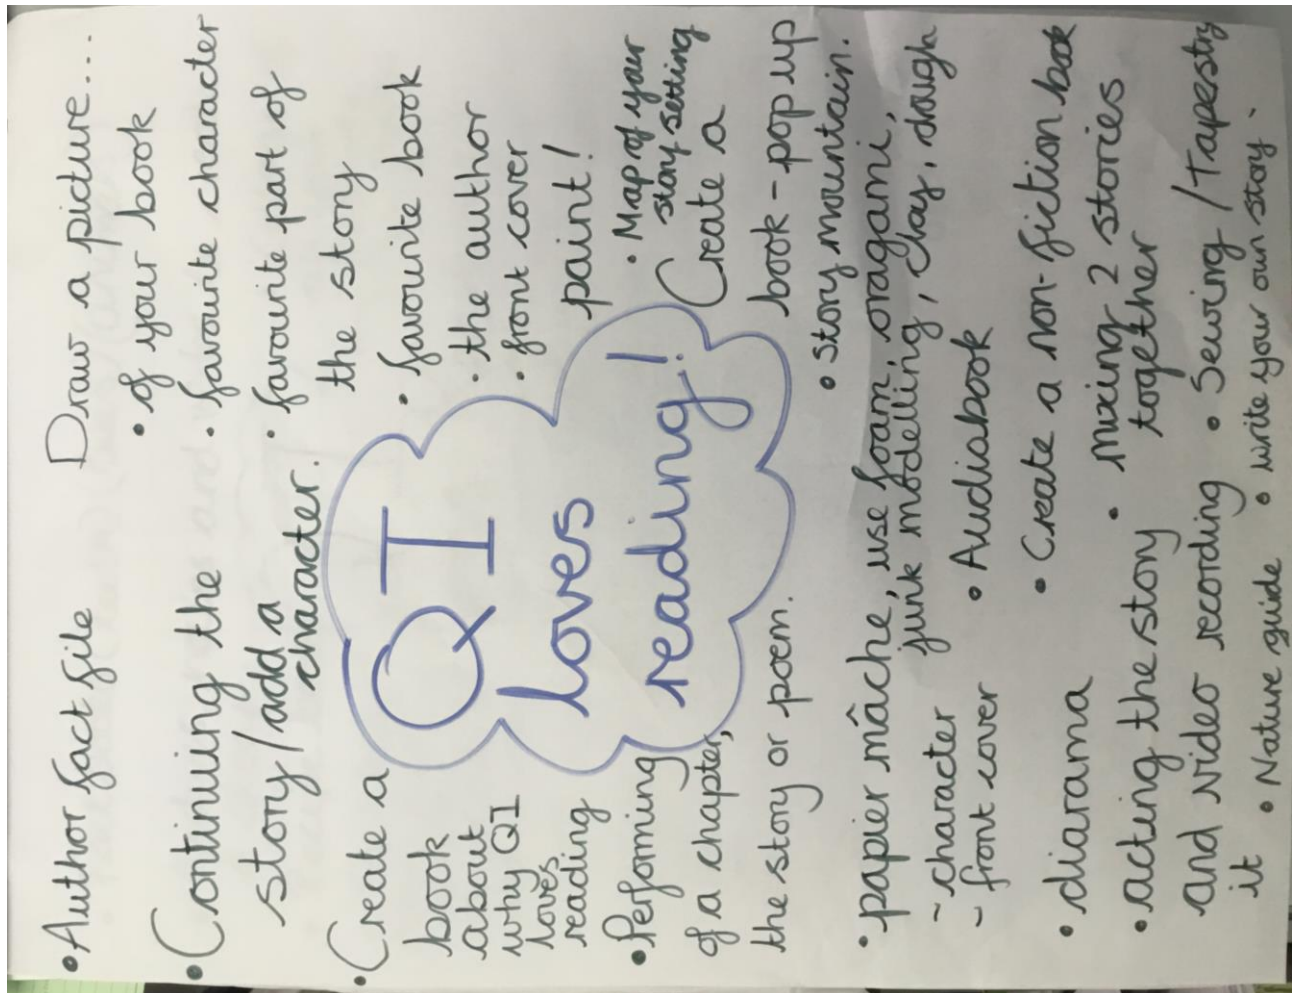 • Author fact file
• Continuing the
story / add a
character.
• Create a
book
about
why QI
loves
reading
• Performing
of a chapter,
the story or poem.
Draw a picture...
• of your book
• favourite character
• favourite part of
the story
• favourite book
• the author
• front cover
paint!
• Map of your
story setting
Create a
book - pop up
• story mountain.
QI
loves
reading!
• papier mâche, use foam, oragami,
junk modelling, clay, drough
- character
- front cover
• Audiabook
• Create a non-fiction book
• diarama
• mixing 2 stories
together
• acting the story
and video recording
it
• Sewing / Tapestry
• Nature guide
• write your own story.